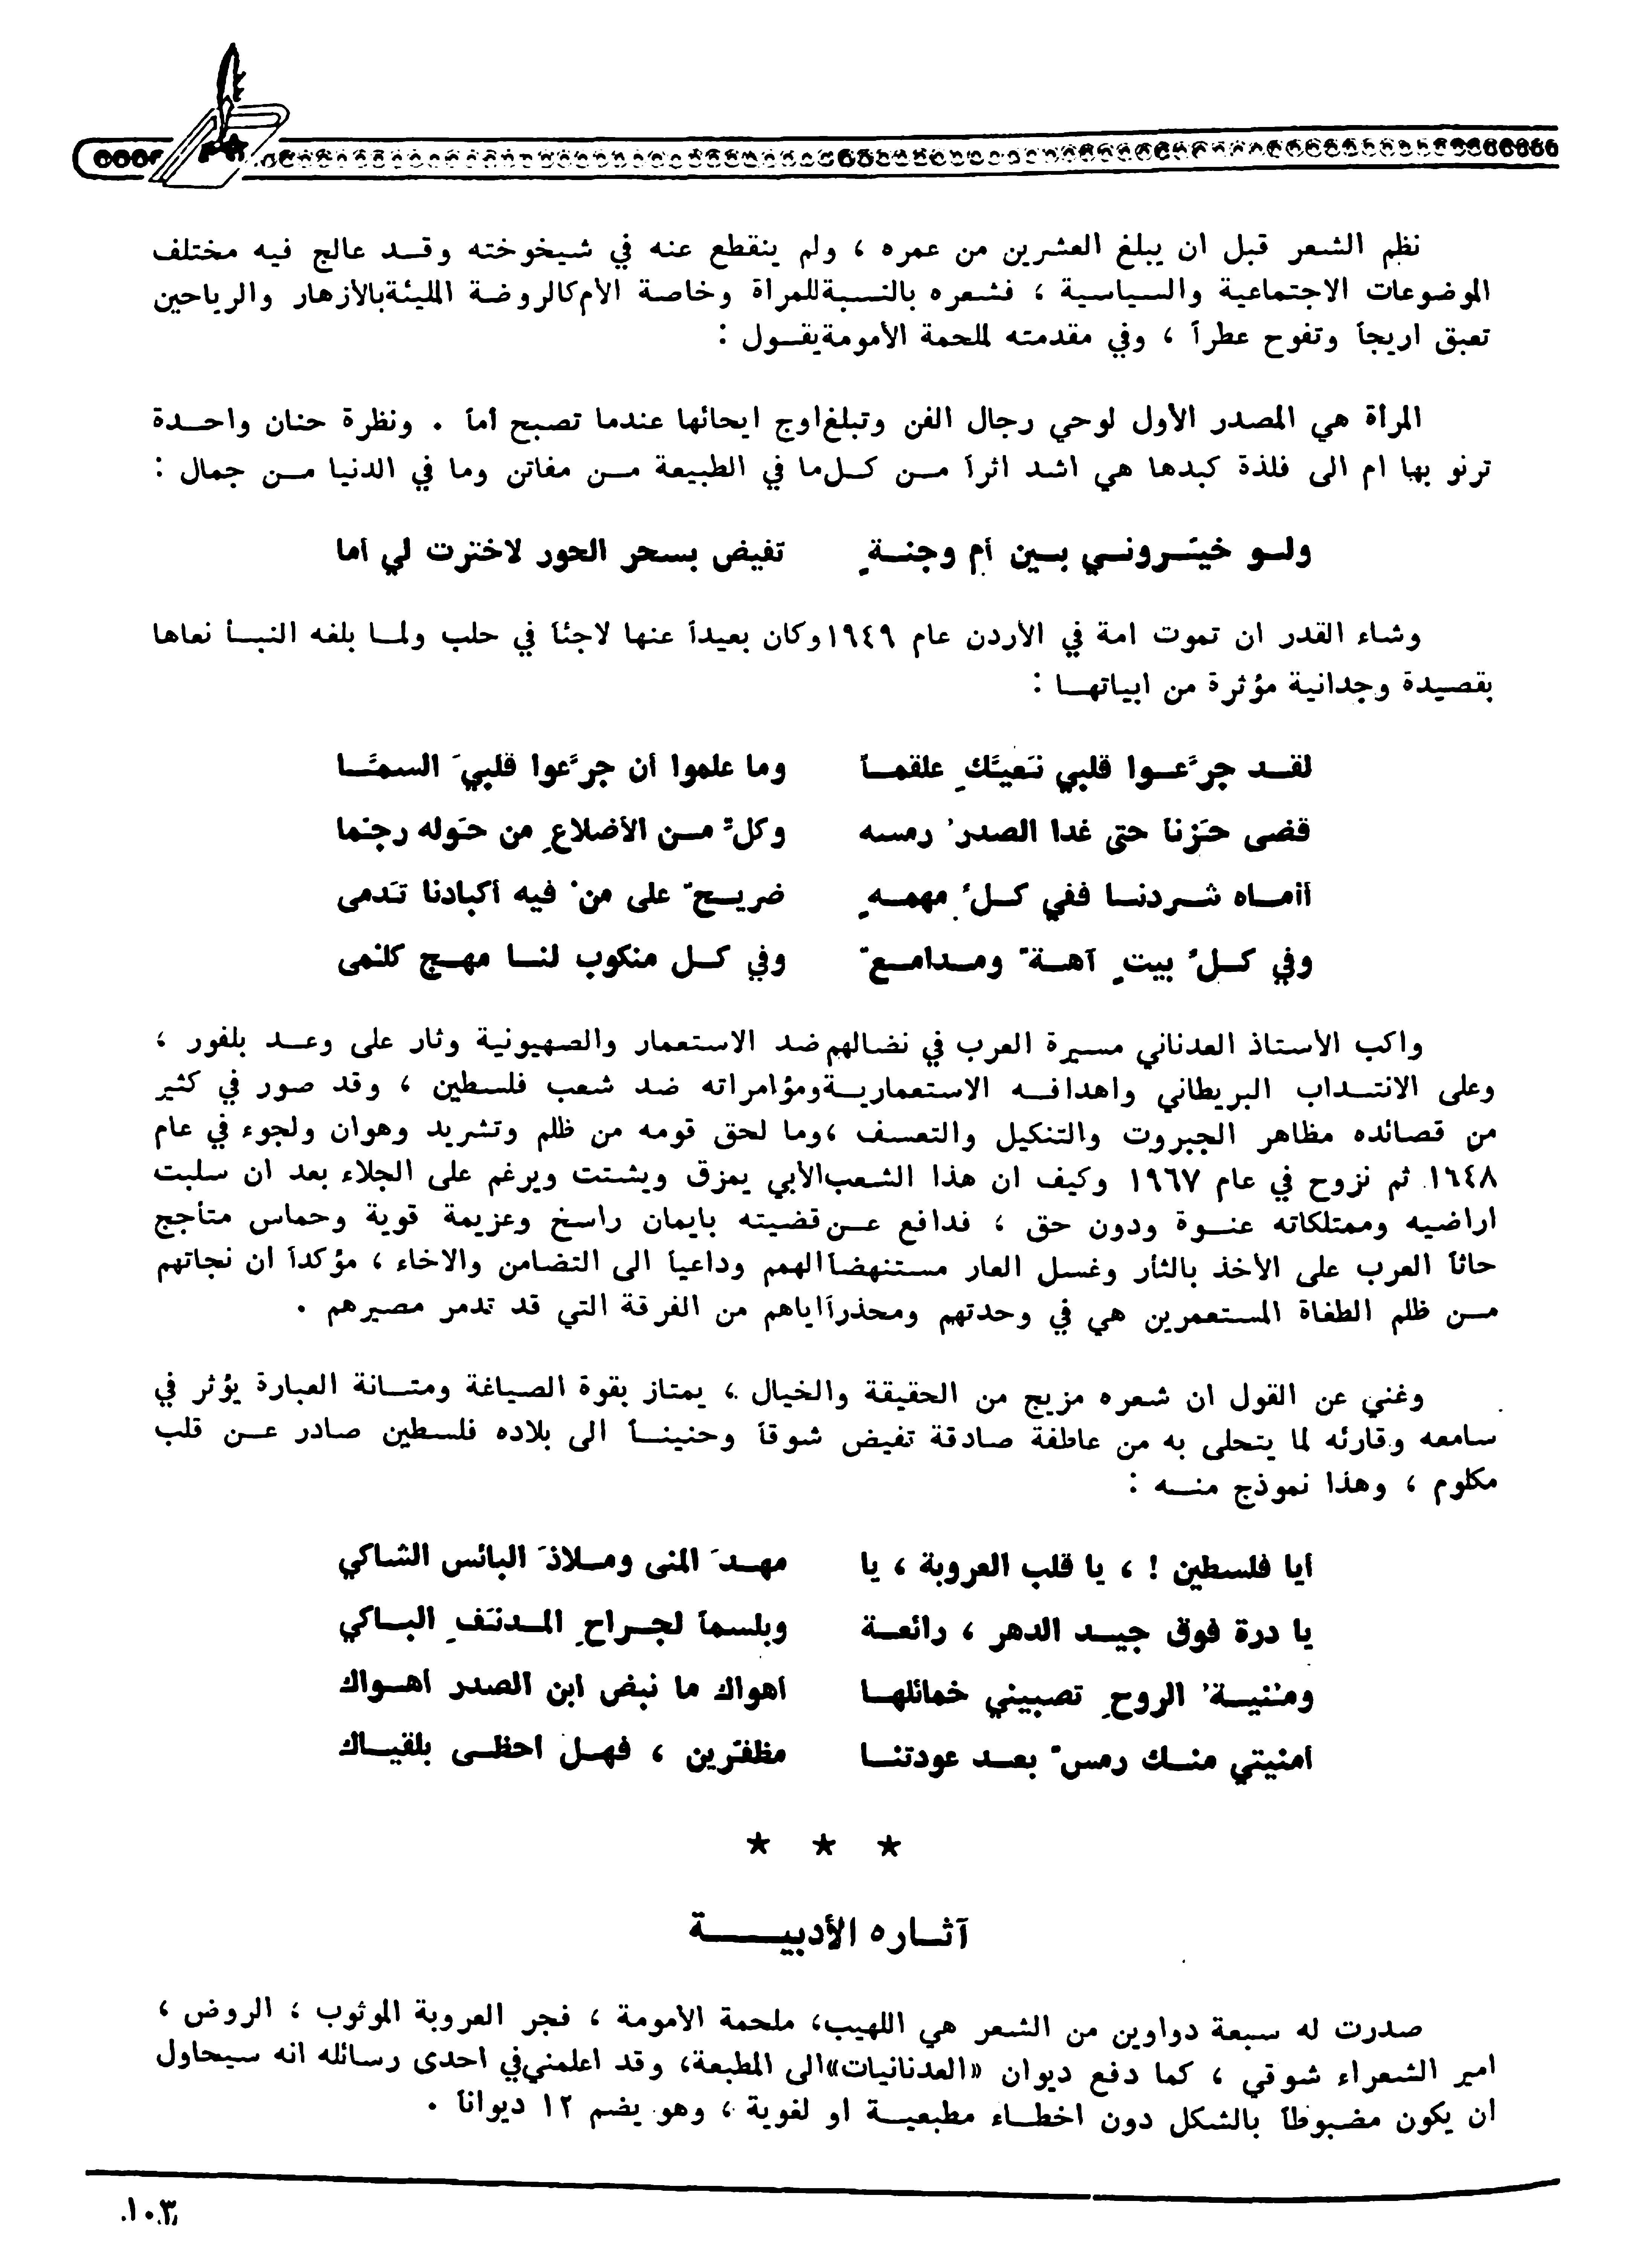 نظم الشعر قبل ان يبلغ العشرين من عمره ، ولم ينقطع عنه في شيخوخته وقـد عالج فيه مختلف
الموضوعات الاجتماعية والسياسية ، فشعره بالنسبة للمرأة وخاصة الأم كالروضة المليئة بالأزهار والرياحين
تعبق اريجاً وتفوح عطراً ، وفي مقدمته لملحمة الأمومة يقـول :
المرأة هي المصدر الأول لوحي رجال الفن وتبلغ اوج ايحائها عندما تصبح أماً . ونظرة حنان واحـدة
ترنو بها ام الى فلذة كبدها هي اشد اثراً مـن كـل ما في الطبيعة مـن مفاتن وما في الدنيا مـن جمال :
ولـو خيّـرونـي بـين أم وجنـةٍ تفيض بسحر الحور لاخترت لي أما
وشاء القدر ان تموت امة في الأردن عام ١٩٤٩ وكان بعيداً عنها لاجئاً في حلب ولمـا بلغه النبـأ نعاها
بقصيدة وجدانية مؤثرة من ابياتهـا :
لقـد جرَّعـوا قلبي نَعيَّكِ علقمـاً وما علموا أن جرَّعوا قلبيَ السمّـا
قضى حَزناً حتى غدا الصدرُ رمسه وكلٌّ مـن الأضلاعِ من حَوله رجْما
أأمـاه شـردنـا ففي كـلِّ مهمـهٍ ضريـحٌ على منْ فيه أكبادنا تَدمى
وفي كـلِّ بيتٍ آهـةٌ ومـدامـعٌ وفي كـل منكوب لنـا مهـج كلْمى
واكب الأستاذ العدناني مسيرة العرب في نضالهم ضد الاستعمار والصهيونية وثار على وعـد بلفور ،
وعلى الانتـداب البريطاني واهدافـه الاستعماريـة ومؤامراته ضد شعب فلسطين ، وقد صور في كثير
من قصائده مظاهر الجبروت والتنكيل والتعسف ، وما لحق قومه من ظلم وتشريد وهوان ولجوء في عام
١٦٤٨ ثم نزوح في عام ١٩٦٧ وكيف ان هذا الشعب الأبي يمزق ويشتت ويرغم على الجلاء بعد ان سلبت
اراضيه وممتلكاته عنـوة ودون حق ، فدافع عـن قضيته بايمان راسخ وعزيمة قوية وحماس متأجج
حاثاً العرب على الأخذ بالثأر وغسل العار مستنهضاً الهمم وداعياً الى التضامن والاخاء ، مؤكداً ان نجاتهم
مـن ظلم الطغاة المستعمرين هي في وحدتهم ومحذراً اياهم من الفرقة التي قد تدمر مصيرهم .
وغني عن القول ان شعره مزيج من الحقيقة والخيال ، يمتاز بقوة الصياغة ومتـانة العبارة يؤثر في
سامعه وقارئه لما يتحلى به من عاطفة صادقة تفيض شوقاً وحنينـاً الى بلاده فلسطين صادر عـن قلب
مكلوم ، وهذا نموذج منـه :
أيا فلسطين ! ، يا قلب العروبة ، يا مهـدَ المنى ومـلاذَ البائس الشاكي
يا درة فوق جيـد الدهر ، رائعـة وبلسماً لجـراحِ المـدنَفِ البـاكي
ومُنيـةُ الروحِ تصبيني خمائلهـا أهواك ما نبض ابن الصدر اهـواك
أمنيتي منـك رمسٌ بعـد عودتنـا مظفّرين ، فهـل احظـى بلقيـاك
★ ★ ★
آثـاره الأدبيـــة
صدرت له سبعة دواوين من الشعر هي اللهيب، ملحمة الأمومة ، فجر العروبة الموثوب ، الروض ،
امير الشعراء شوقي ، كما دفع ديوان «العدنانيات» الى المطبعة، وقد اعلمني في احدى رسائله انه سيحاول
ان يكون مضبوطاً بالشكل دون اخطـاء مطبعيـة او لغوية ، وهو يضم ١٢ ديواناً .
١٠٣